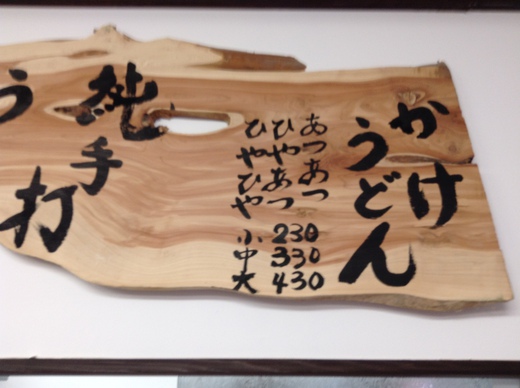 かけ
うどん
あつあつ
ひやあつ
ひやひや
小 230
中 330
大 430
純手打
う